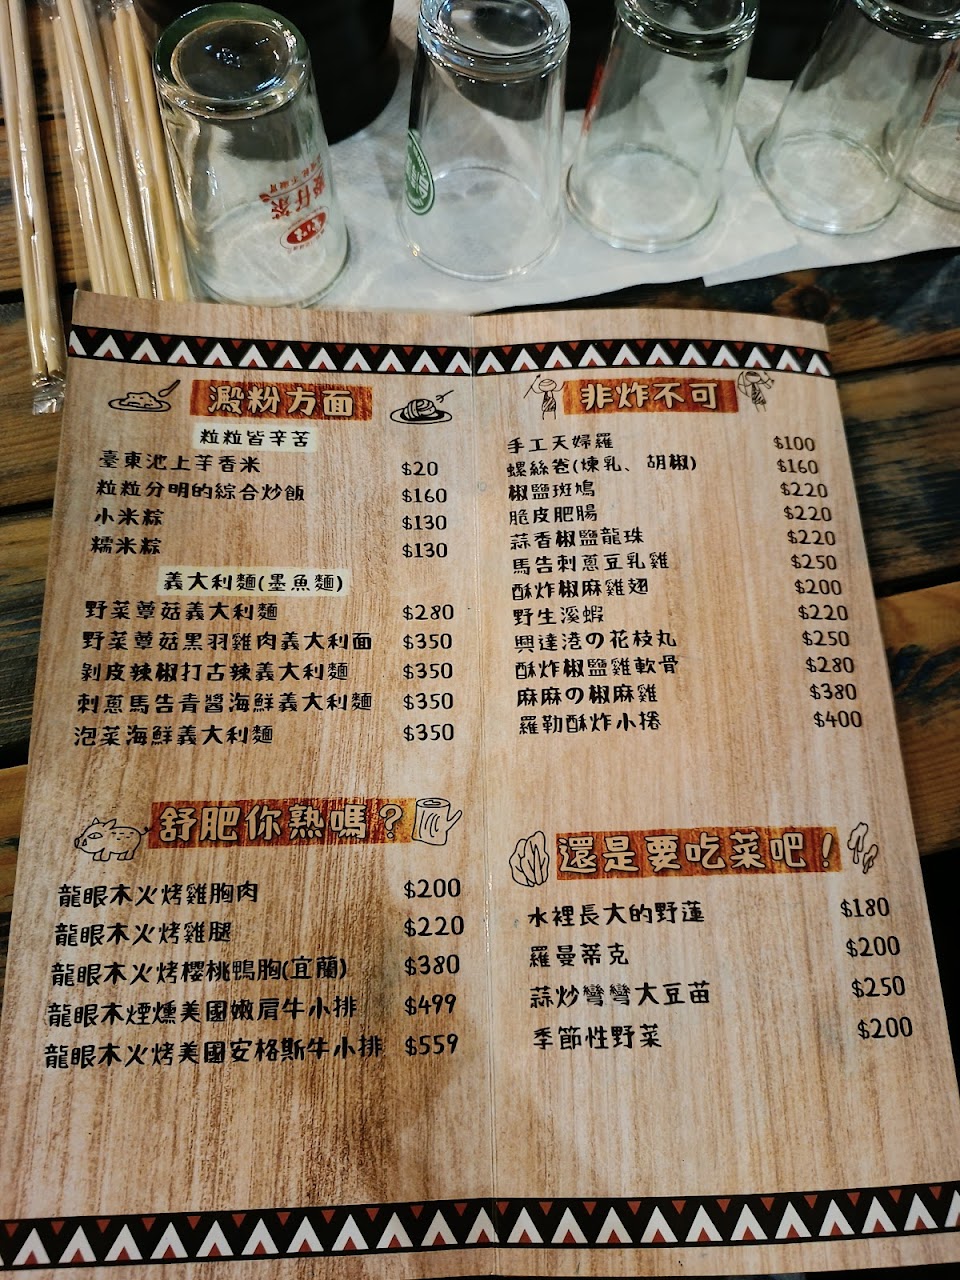 仔茶
澱粉方面
粒粒皆辛苦
臺東池上芋香米 $20
粒粒分明的綜合炒飯 $160
小米粽 $130
糯米粽 $130
義大利麵(墨魚麵)
野菜蕈菇義大利麵 $280
野菜蕈菇黑羽雞肉義大利面 $350
剝皮辣椒打古辣義大利麵 $350
刺蔥馬告青醬海鮮義大利麵 $350
泡菜海鮮義大利麵 $350
舒肥你熟嗎？
龍眼木火烤雞胸肉 $200
龍眼木火烤雞腿 $220
龍眼木火烤櫻桃鴨胸(宜蘭) $380
龍眼木煙燻美國嫩肩牛小排 $499
龍眼木火烤美國安格斯牛小排 $559
非炸不可
手工天婦羅 $100
螺絲卷(煉乳、胡椒) $160
椒鹽斑鳩 $220
脆皮肥腸 $220
蒜香椒鹽龍珠 $220
馬告刺蔥豆乳雞 $250
酥炸椒麻雞翅 $200
野生溪蝦 $220
興達港の花枝丸 $250
酥炸椒鹽雞軟骨 $280
麻麻の椒麻雞 $380
羅勒酥炸小捲 $400
還是要吃菜吧！
水裡長大的野蓮 $180
羅曼蒂克 $200
蒜炒彎彎大豆苗 $250
季節性野菜 $200